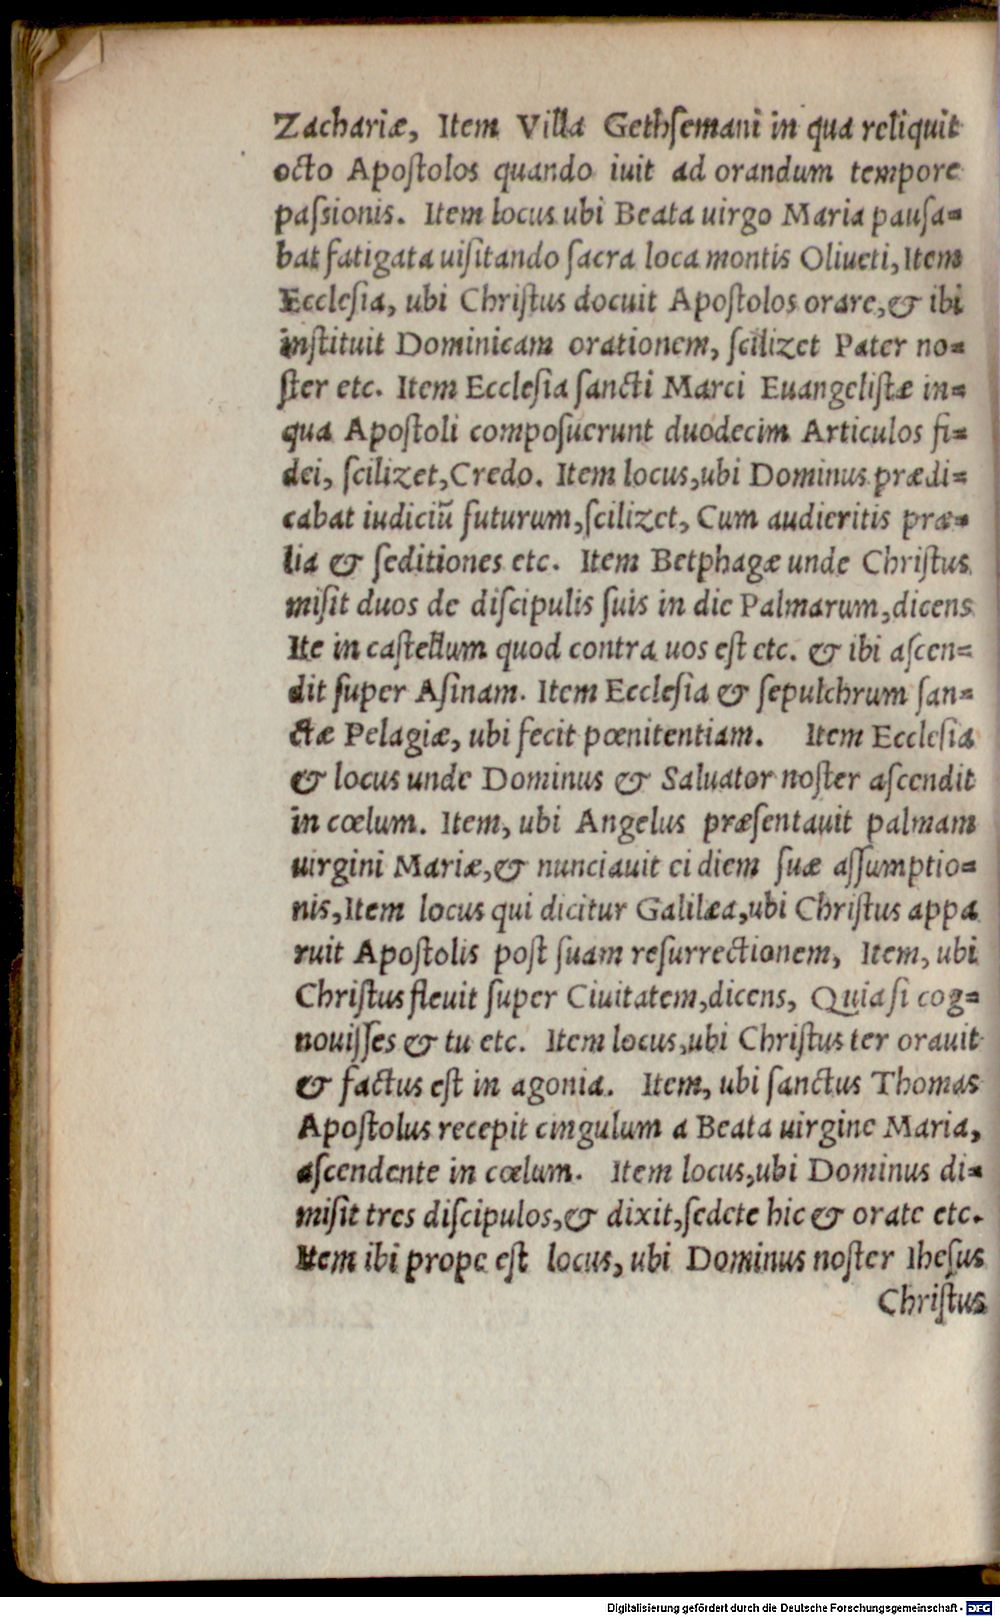 Zachariæ, Item Villa Gethſemani in qua reliquit
octo Apoſtolos quando iuit ad orandum tempore
paſsionis. Item locus ubi Beata uirgo Maria pauſa=
bat fatigata uiſitando ſacra loca montis Oliueti, Item
Eccleſia, ubi Chriſtus docuit Apoſtolos orare, & ibi
inſtituit Dominicam orationem, ſcilizet Pater no=
ſter etc. Item Eccleſia ſancti Marci Euangeliſtæ in=
qua Apoſtoli compoſuerunt duodecim Articulos fi=
dei, ſcilizet, Credo. Item locus, ubi Dominus prædi=
cabat iudiciũ futurum, ſcilizet, Cum audieritis præ=
lia & ſeditiones etc. Item Betphagæ unde Chriſtus
miſit duos de diſcipulis ſuis in die Palmarum, dicens
Ite in caſtellum quod contra uos eſt etc. & ibi aſcen=
dit ſuper Aſinam. Item Eccleſia & ſepulchrum ſan=
ctæ Pelagiæ, ubi fecit pœnitentiam. Item Eccleſia
& locus unde Dominus & Saluator noſter aſcendit
in cœlum. Item, ubi Angelus præſentauit palmam
uirgini Mariæ, & nunciauit ei diem ſuæ aſſumptio=
nis, Item locus qui dicitur Galilæa, ubi Chriſtus appa
ruit Apoſtolis poſt ſuam reſurrectionem, Item, ubi
Chriſtus fleuit ſuper Ciuitatem, dicens, Quia ſi cog=
nouiſſes & tu etc. Item locus, ubi Chriſtus ter orauit
& factus eſt in agonia. Item, ubi ſanctus Thomas
Apoſtolus recepit cingulum a Beata uirgine Maria,
aſcendente in cœlum. Item locus, ubi Dominus di=
miſit tres diſcipulos, & dixit, ſedete hic & orate etc.
Item ibi prope eſt locus, ubi Dominus noſter Iheſus
Chriſtus
Digitalisierung gefördert durch die Deutsche Forschungsgemeinschaft - DFG